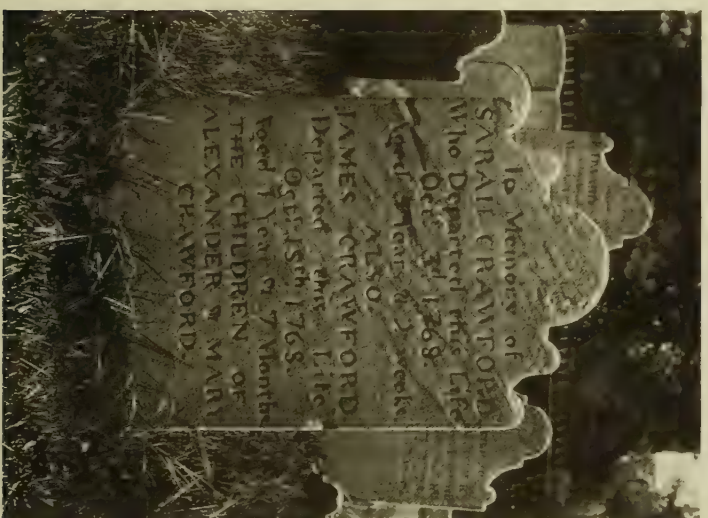 In Memory of
SARAH CRAWFORD
Who Departed this Life
Oct. 3d 1768.
Aged 3 Years & 2 Weeks
ALSO
JAMES CRAWFORD
Departed this Life
Oct. 15th 1768.
Aged 1 Year & 7 Months
THE CHILDREN OF
ALEXANDER & MARY
CRAWFORD.